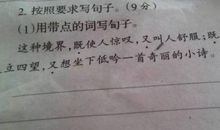 2. 按照要求写句子。(9分)
(1)用带点的词写句子。
这种境界,既使人惊叹,又叫人舒服;既
立四望,又想坐下低吟一首奇丽的小诗。